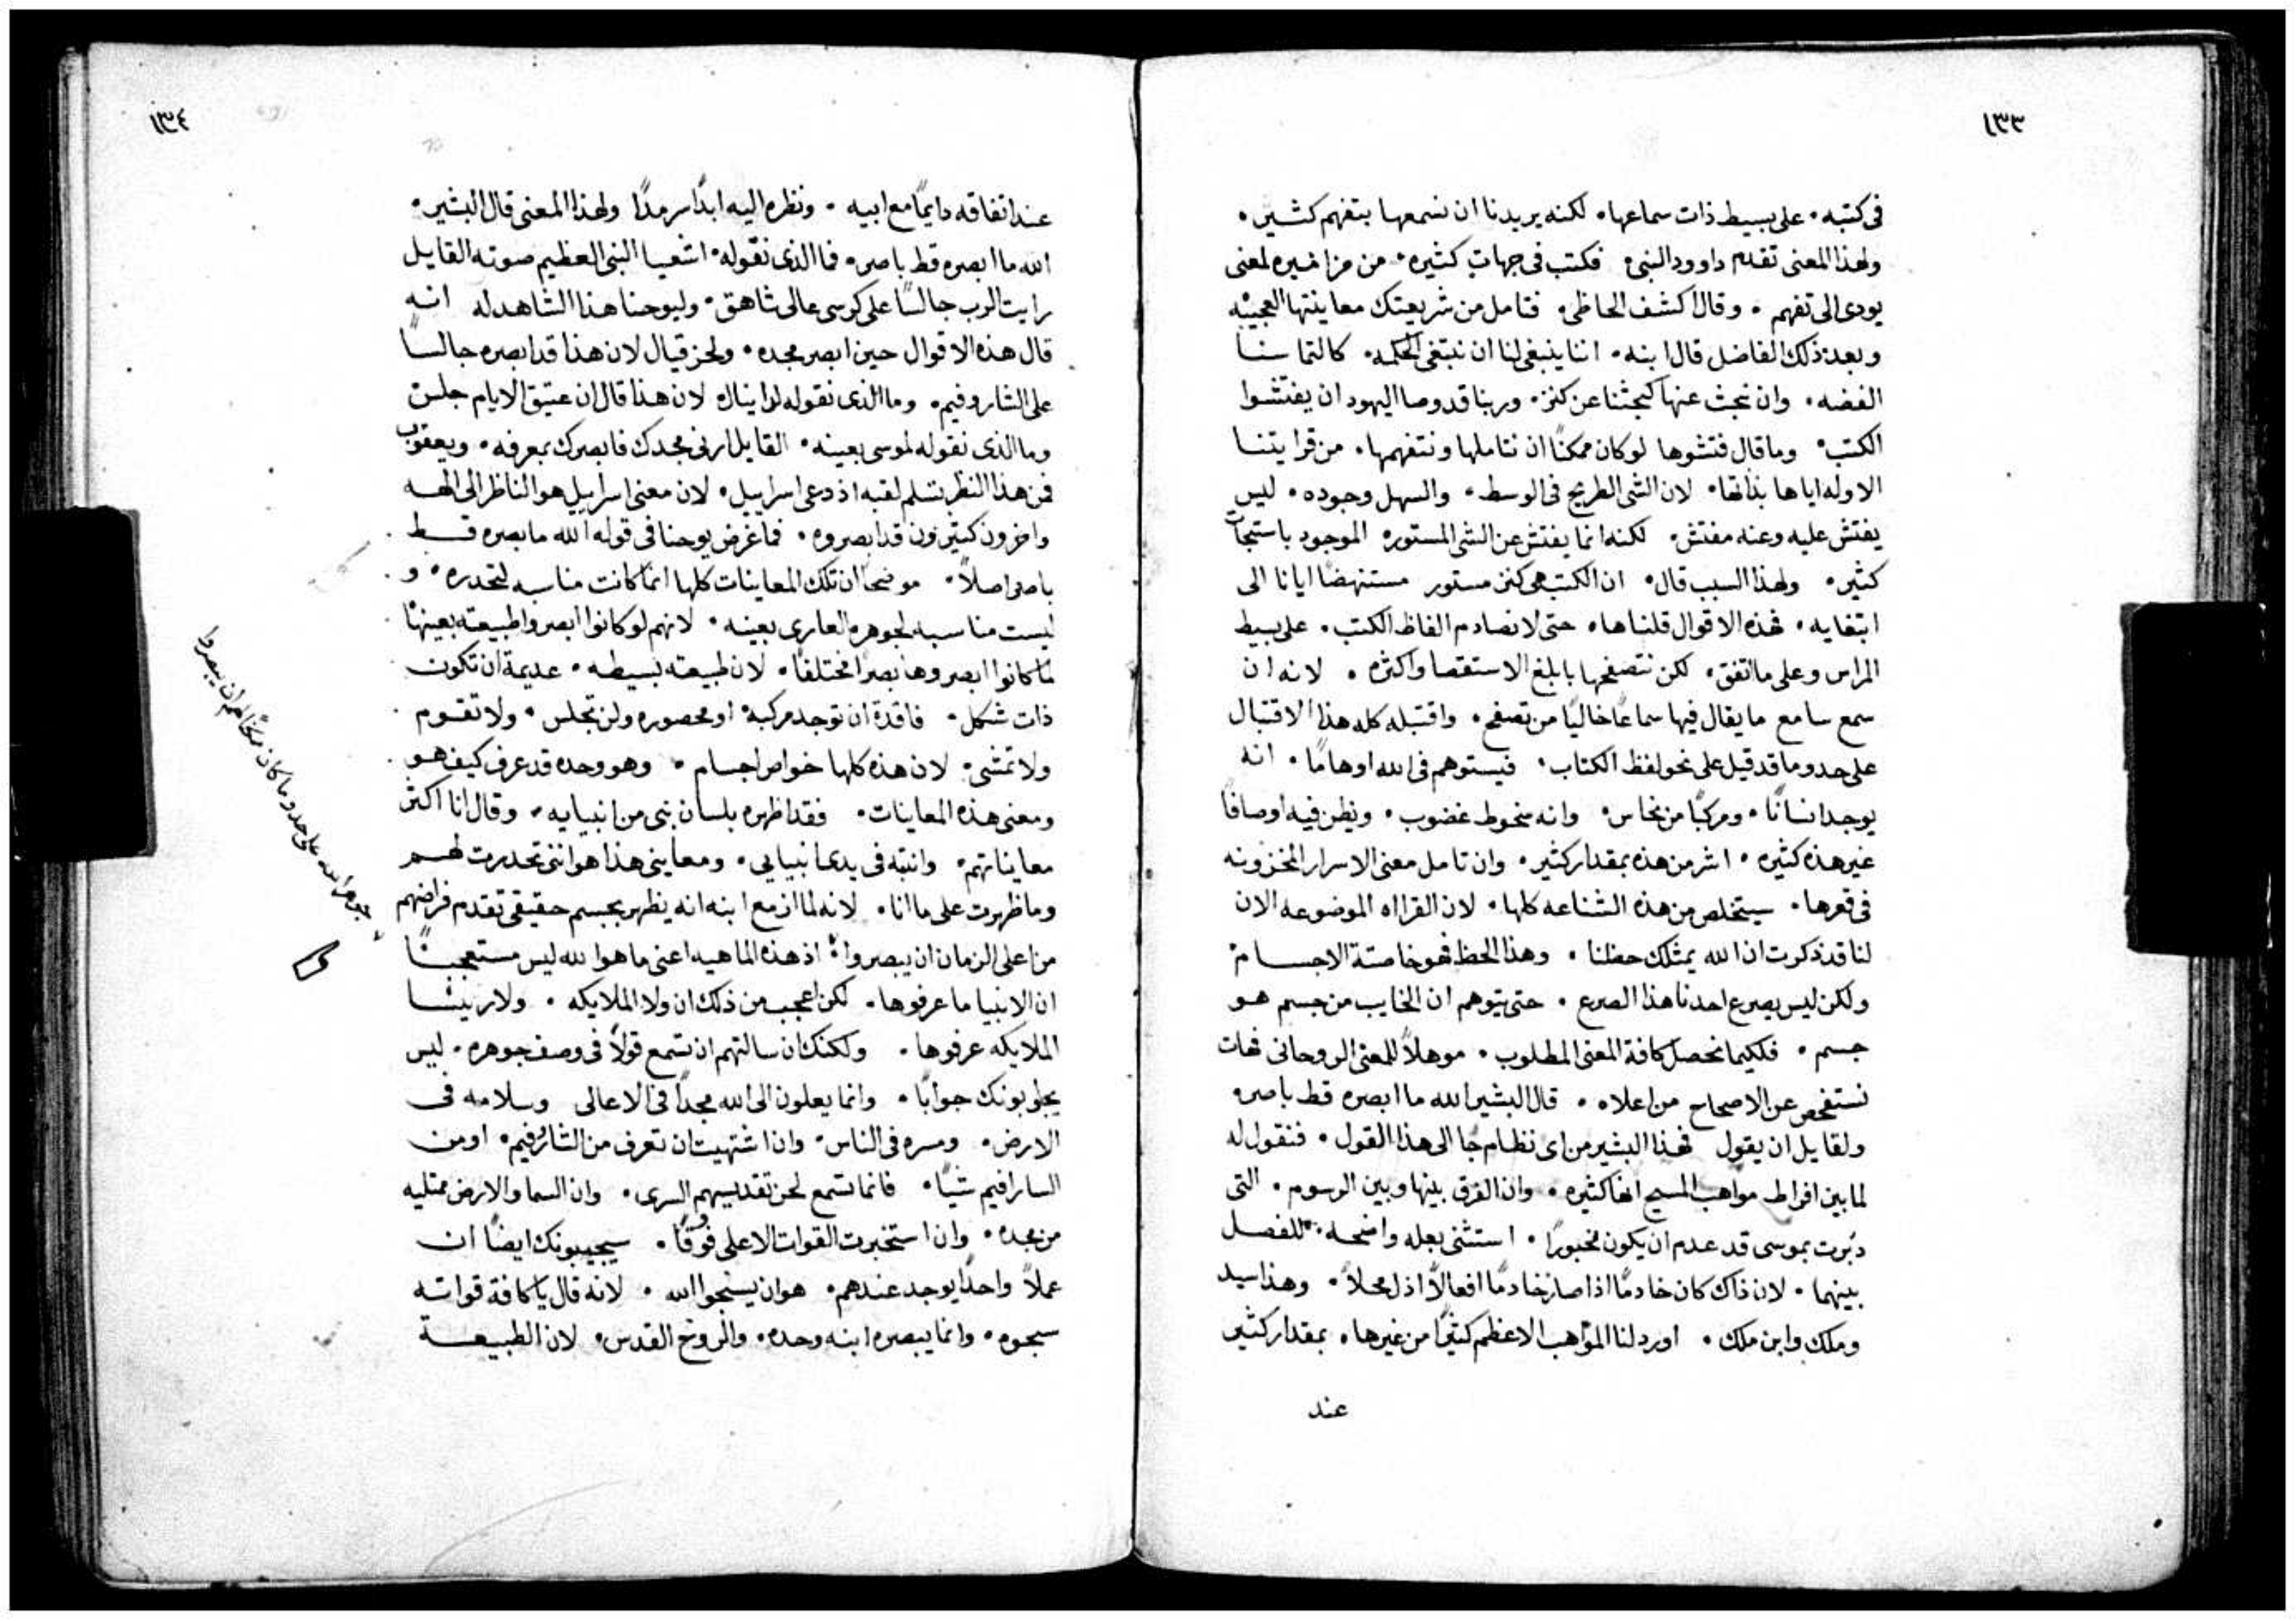 ١٣٣
في كتبه. على بسيط ذات سماعها. لكنه يريدنا ان نسمعها بتفهم كثير.
ولهذا المعنى تقدم داوود النبي فكتب في جهات كثيره. من مزاميره لمعنى
يودى الى تفهم. وقال اكشف الحاظى. فتامل من شريعتك معاينتها العجيبه
وبعد ذلك الفاضل قال ابنه. اننا ينبغي لنا ان نبتغى الحكمه. كالتماسنا
الفضه. وان نبحث عنها كبحثنا عن كنز. وربنا قد وصا اليهود ان يفتشوا
الكتب. وما قال فتشوها لو كان ممكنًا ان نتاملها ونتفهمها. من قرايتنا
الاوله اياها بذاتها. لان الشي الطريح في الوسط. والسهل وجوده. ليس
يفتش عليه وعنه مفتش. لكنه انما يفتش عن الشي المستوره الموجود باستبحاث
كثير. ولهذا السبب قال. ان الكتب هي كنز مستور مستنهضًا ايانا الى
ابتغايه. فهذه الاقوال قلناها. حتى لا نصادم الفاظ الكتب. على بسيط
المراس وعلى ما اتفق. لكن نتصفحها بابلغ الاستقصا واكثره. لانه ان
سمع سامع ما يقال فيها سماعًا خاليًا من تصفح. واقتبله كله هذا الاقتبال
على حد وما قد قيل على نحو لفظ الكتاب. فيستوهم في الله اوهامًا. انه
يوجد انسانًا. ومركبًا من نحاس. وانه سخوط غضوب. ويظن فيه اوصافًا
غير هذه كثيره. اشر من هذه بمقدار كثير. وان تامل معنى الاسرار المخزونه
في قعرها. سيتخلص من هذه الشناعه كلها. لان القراه الموضوعه الان
لنا قد ذكرت ان الله يمتلك حظنا. وهذا الحظ فهو خاصتة الاجسام
ولكن ليس يصرع احدنا هذا الصرع. حتى يتوهم ان الخايب من جسم هو
جسم. فلكيما نحصل كافة المعنى المطلوب. موهلًا للمعنى الروحاني فهات
نستفحص عن الاصحاح من اعلاه. قال البشير الله ما ابصره قط باصر.
ولقايل ان يقول فهذا البشير من اى نظام جا الى هذا القول. فنقول له
لما بين افراط مواهب المسيح انها كثيره. وان الفرق بينها وبين الرسوم. التى
دبرت بموسى قد عدم ان يكون مخبورًا. استثنى بعله واضحه. للفصل
بينهما. لان ذاك كان خادمًا اذا صار خادمًا افعالًا اذل محلًا. وهذا سيد
وملك وابن ملك. اورد لنا المواهب الاعظم كثيرًا من غيرها. بمقدار كثير
عند
١٣٤
عند اتفاقه دايمًا مع ابيه. ونظره اليه ابدًا سرمدًا ولهذا المعنى قال البشير.
الله ما ابصره قط باصر. فما الذى نقوله. اشعيا النبى العظيم صوته القايل
رايت الرب جالسًا على كرسى عالى شاهق. وليوحنا هذا الشاهد له انه
قال هذه الاقوال حين ابصر مجده. ولحزقيال لان هذا قد ابصره جالسًا
على الشاروفيم. وما الذى نقوله لدانيال لان هذا قال ان عتيق الايام جلس
وما الذى نقوله لموسى بعينه. القايل ارنى مجدك فابصرك بمعرفه. ويعقوب
فمن هذا النظر تسلم لقبه اذ دعى اسراييل. لان معنى اسراييل هو الناظر الى الهه
واخرون كثيرون قد ابصروه. فما غرض يوحنا في قوله الله ما بصره قط
باصر اصلًا. موضحًا ان تلك المعاينات كلها انما كانت مناسبه لتحدره. و
ليست مناسبه لجوهره العارى بعينه. لانهم لو كانوا ابصروا طبيعته بعينها
لما كانوا ابصروها بصرًا مختلفًا. لان طبيعته بسيطه. عديمة ان تكون
ذات شكل. فاقدة ان توجد مركبه او محصوره ولن تجلس. ولا تقوم
ولا تمشى. لان هذه كلها خواص اجسام. وهو وحده قد عرف كيف هو
ومعنى هذه المعاينات. فقد اظهره بلسان نبى من انبيايه. وقال انا اكثر
معايناتهم. وانتبه في يدى انبيايى. ومعاينى هذا هو اننى تحدرت لهم
وما ظهرت على ما انا. لانه لما ازمع ابنه انه يظهر بجسم حقيقى تقدم فراضهم
من اعلى الزمان ان يبصروا. اذ هذه الماهيه اعنى ما هو الله ليس مستعجبًا
ان الانبيا ما عرفوها. لكن اعجب من ذلك ان ولا الملايكه. ولا رييسا
الملايكه عرفوها. ولكنك ان سالتهم ان تسمع قولًا في وصف جوهره. ليس
يجاوبونك جوابًا. وانما يعلون الى الله مجدًا في الاعالى وسلامه فى
الارض. ومسره في الناس. وان اشتهيت ان تعرف من الشاروفيم. او من
السارافيم شيًا. فانما تسمع لحن تقديسهم السرى. وان السما والارض ممتليه
من مجده. وان استخبرت القوات الاعلى فوقًا. سيجيبونك ايضًا ان
عملًا واحدًا يوجد عندهم. هو ان يسبحوا الله. لانه قال يا كافة قواته
سبحوه. وانما يبصره ابنه وحده. والروح القدس. لان الطبيعة
جوهر الله على حد وما كان ممكنًا لهم ان يبصروا